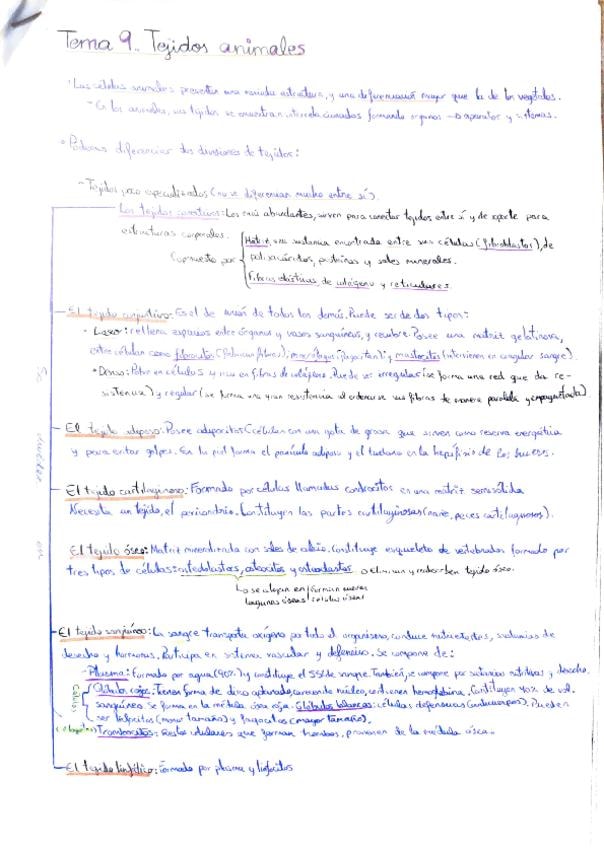 Tema 9.. Tejidos animales
· Las células animales presentan una variada estructura, y una diferenciación mayor que la de los vegetales.
- En los animales, sus tejidos se encuentran interrelacionados formando órganos → aparatos y sistemas.
· Podemos diferenciar dos divisiones de tejidos:
- Tejidos poco especializados (no se diferencian mucho entre sí).
Los tejidos conectivos: Los más abundantes, sirven para conectar tejidos entre sí y de soporte para
estructuras corporales.
Compuesto por
Matriz, una sustancia encontrada entre sus células (fibroblastos), de
polisacáridos, proteínas y sales minerales.
Fibras elásticas, de colágeno y reticulares.
Se dividen en
- El tejido conjuntivo: Es el de unión de todos los demás. Puede ser de dos tipos:
· Laxo: rellena espacios entre órganos y vasos sanguíneos, y recubre. Posee una matriz gelatinosa,
entre células como fibrocitos (fabrican fibras), macrófagos (fagocitan) y mastocitos (intervienen en coagular sangre).
· Denso: Pobre en células y rico en fibras de colágeno. Puede ser irregular (se forma una red que da re-
sistencia) y regular (se forma una gran resistencia al ordenarse sus fibras de manera paralela y empaquetada)
- El tejido adiposo: Posee adipocitos (células con una gota de grasa que sirven como reserva energética
y para evitar golpes. En la piel forma el panículo adiposo y el tuétano en la hepífisis de los huesos.
- El tejido cartilaginoso: Formado por células llamadas condrocitos en una matriz semisólida
Necesita un tejido, el pericondrio. Constituyen las partes cartilaginosas (nariz, peces cartilaginosos).
El tejido óseo: Matriz mineralizada con sales de calcio. Constituye esqueleto de vertebrados formado por
tres tipos de células: osteoblastos, osteocitos y osteoclastos → eliminan y reabsorben tejido óseo.
Lo se alojan en lagunas óseas
forman nuevas células óseas
- El tejido sanguíneo: La sangre transporta oxígeno por todo el organismo, conduce nutrientes, sustancias de
desecho y hormonas. Participa en sistema vascular y defensivo. Se compone de:
- Plasma: Formado por agua (90%) y constituye el 55% de sangre. También, se compone por sustancias nutritivas y desecho.
Células
Glóbulos rojos: Tienen forma de disco aplanado, carecen de núcleo, contienen hemoglobina. Constituyen 40% de vol.
sanguíneo. Se forma en la médula ósea roja. Glóbulos blancos: células defensivas (anticuerpos). Pueden
ser linfocitos (menor tamaño) y fagocitos (mayor tamaño).
Trombocitos: Restos celulares que forman trombos, provienen de la médula ósea.
- El tejido linfático: Formado por plasma y linfocitos